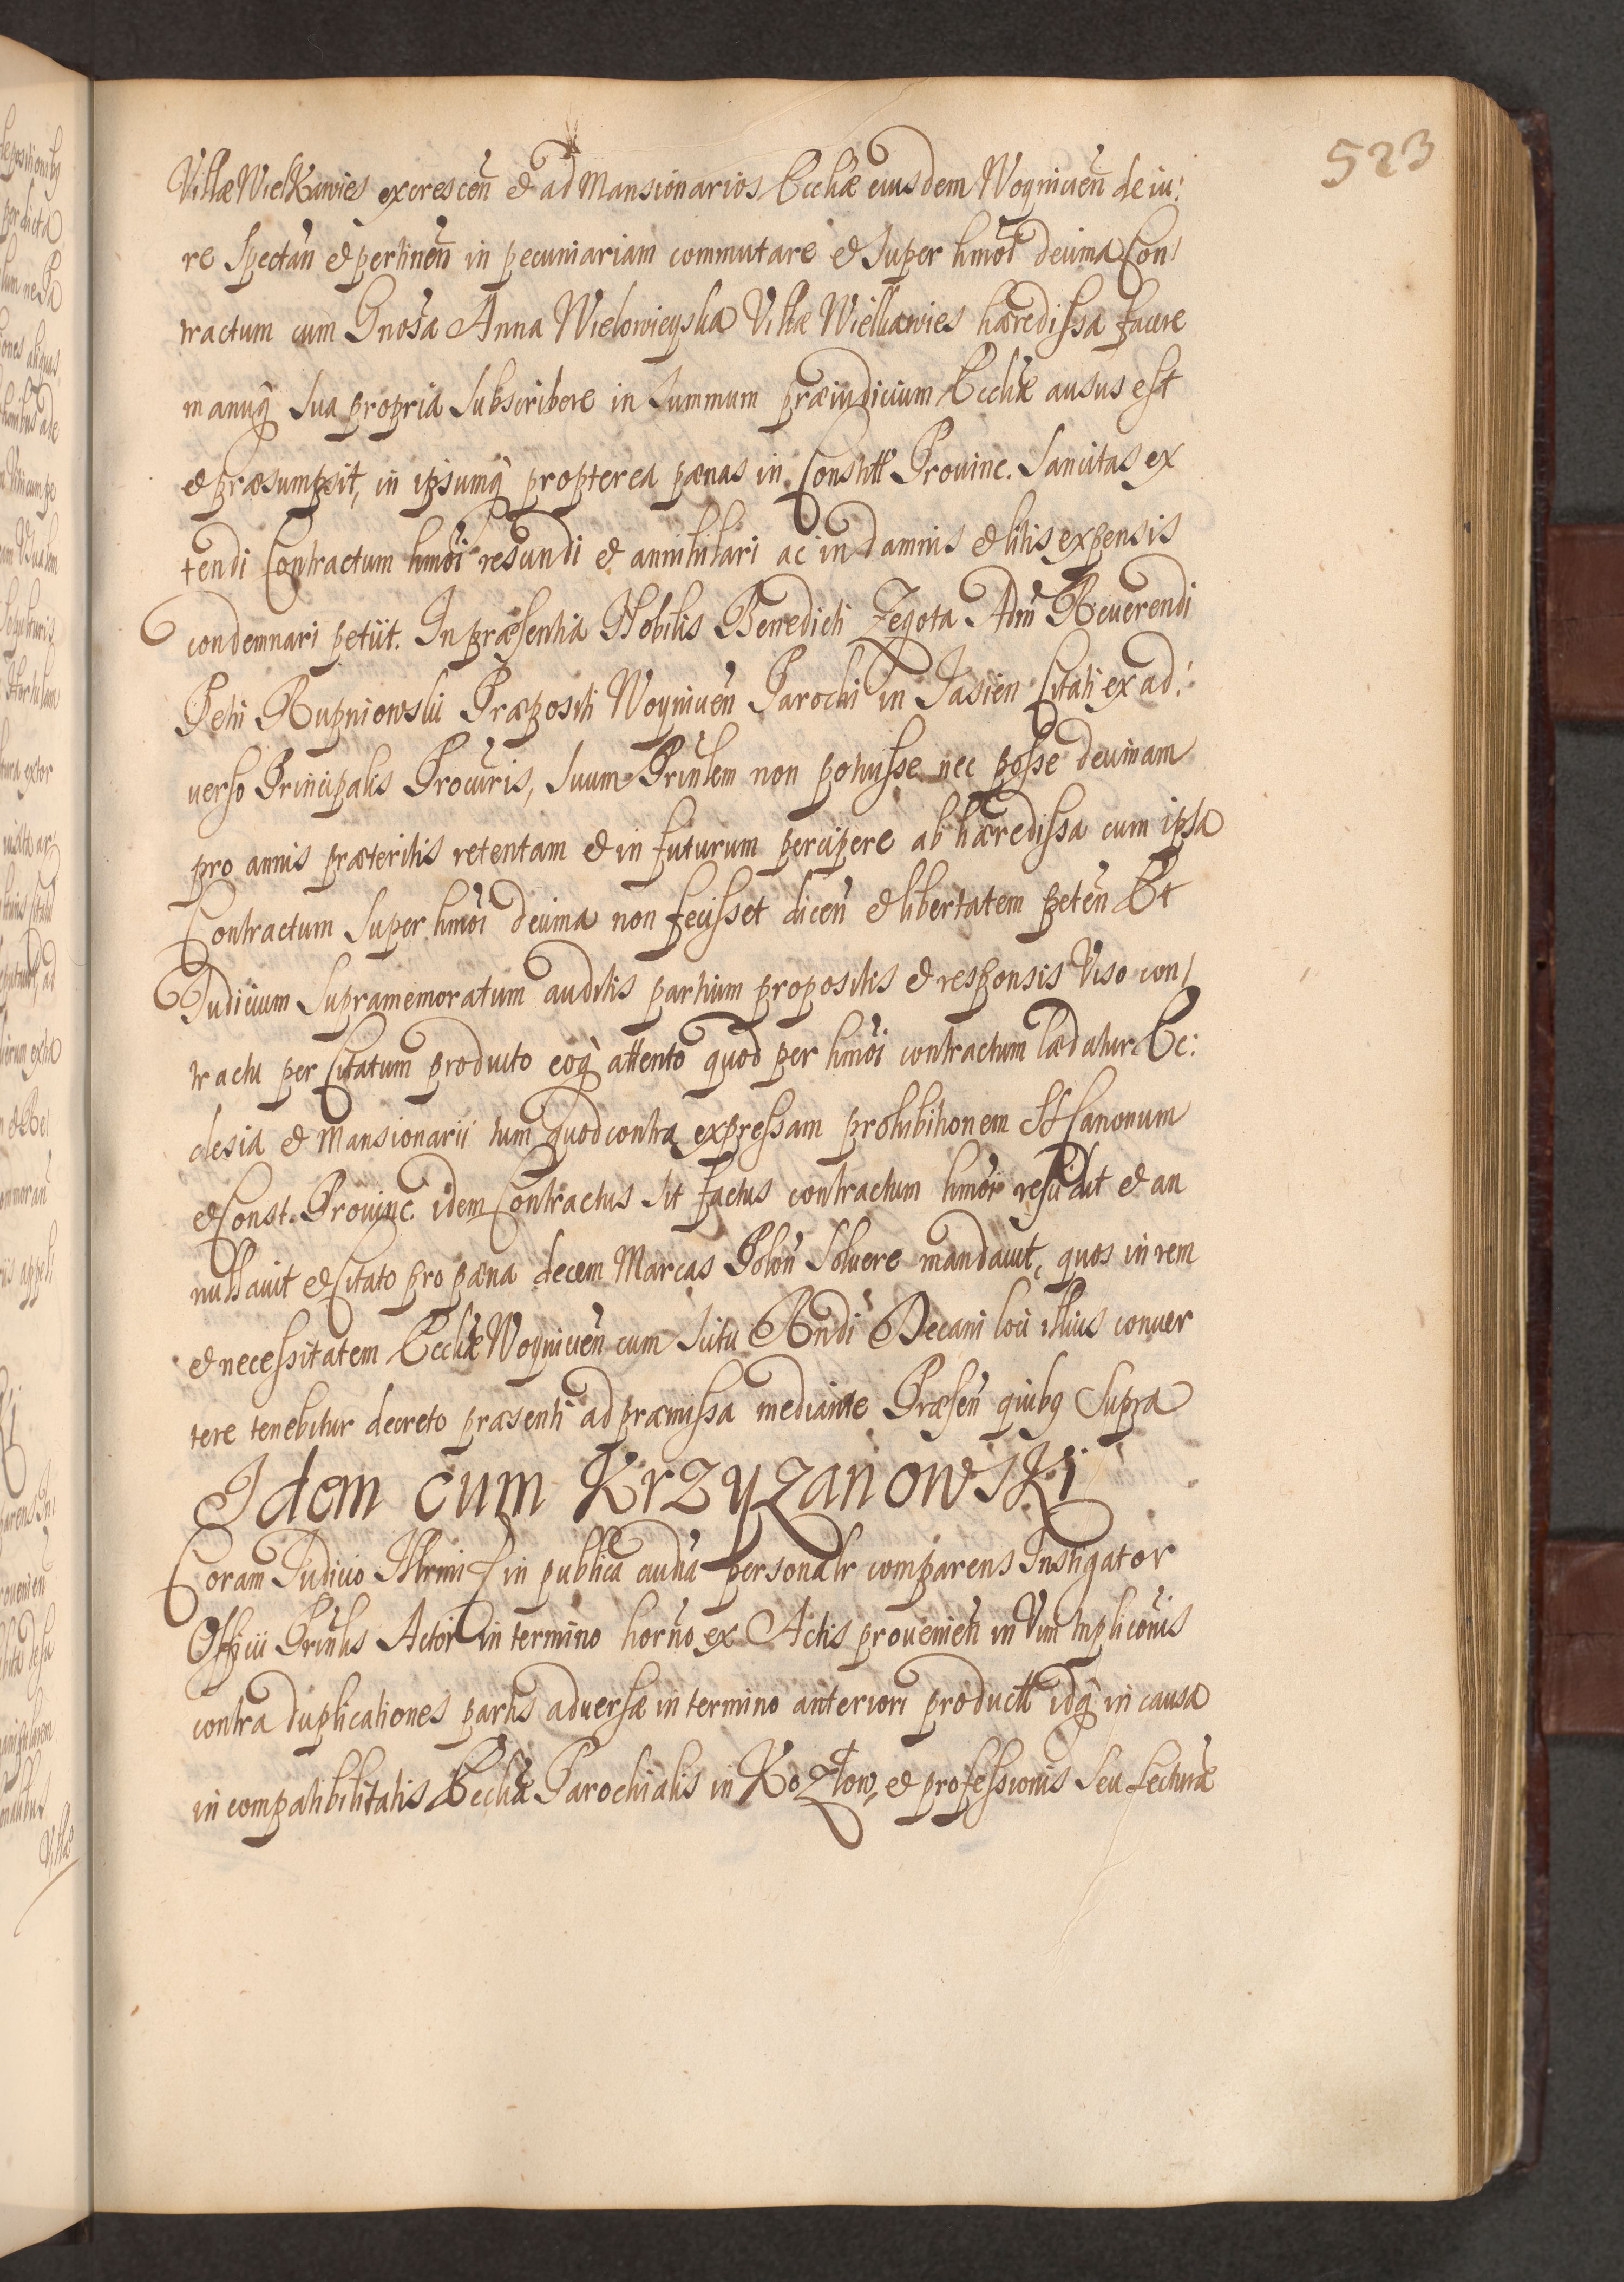 523
Villæ Wielkawies excrescen̄ et ad Mansionarios Eccliæ eiusdem Woynicen̄ de iu:
re Spectan̄ et pertinen̄ in pecuniariam commutare et Super hmōi decima Con/
tractum cum Gnosa Anna Wielowieyska Villæ Wielkawies hæredissa facere
manuq̀ Sua propria Subscribere in Summum præiudicium Eccliæ ausus est
et præsumpsit, in ipsumq̀ propterea pænas in Constitt Prouinc. Sancitas ex
tendi Contractum hmōi rescindi et annihilari ac in damnis et litis expensis
condemnari petiit. In præsentia Nobilis Benedicti Zegota Adm̄ Reuerendi
Petri Rupniowski Præpositi Woyniceñ Parochi in Jasien Citati ex ad:
uerso Principalis Procuris, Suum Prinlem non potuisse nec posse decimam
pro annis præteritis retentam et in futurum percipere ab hæredissa cum ipsa
Contractum Super hmōi decima non fecisset dicen̄ et libertatem peten̄ Et
Judicium Supramemoratum auditis partium propositis et responsis Viso con/
tractu per Citatum producto eoq̀ attento quod per hmōi contractum lædatur Ec:
clesia et Mansionarii tum quod contra expressam prohibitionem SS Canonum
et Const. Prouinc. idem Contractus sit factus contractum hmōi rescidit et an
nullauit et Citato pro pæna decem Marcas Polon̄ Soluere mandauit, quos in rem
et necessitatem Eccliæ Woyniceñ cum Scitu Rndi Decani loci illius conuer
tere tenebitur decreto præsenti ad præmissa mediante Præsen̄ quibq Supra
Idem cum Krzyżanowski
Coram Judicio Illrmi in publica audīa personalr comparens Instigator
Officii Prinlis Actor in termino hornō ex Actis prouenien̄ in Vim tripliconis
contra duplicationes partis aduersæ in termino anteriori productt idq̀ in causa
incompatibilitatis Eccliæ Parochialis in Kozłow, et professionis Seu lecturæ